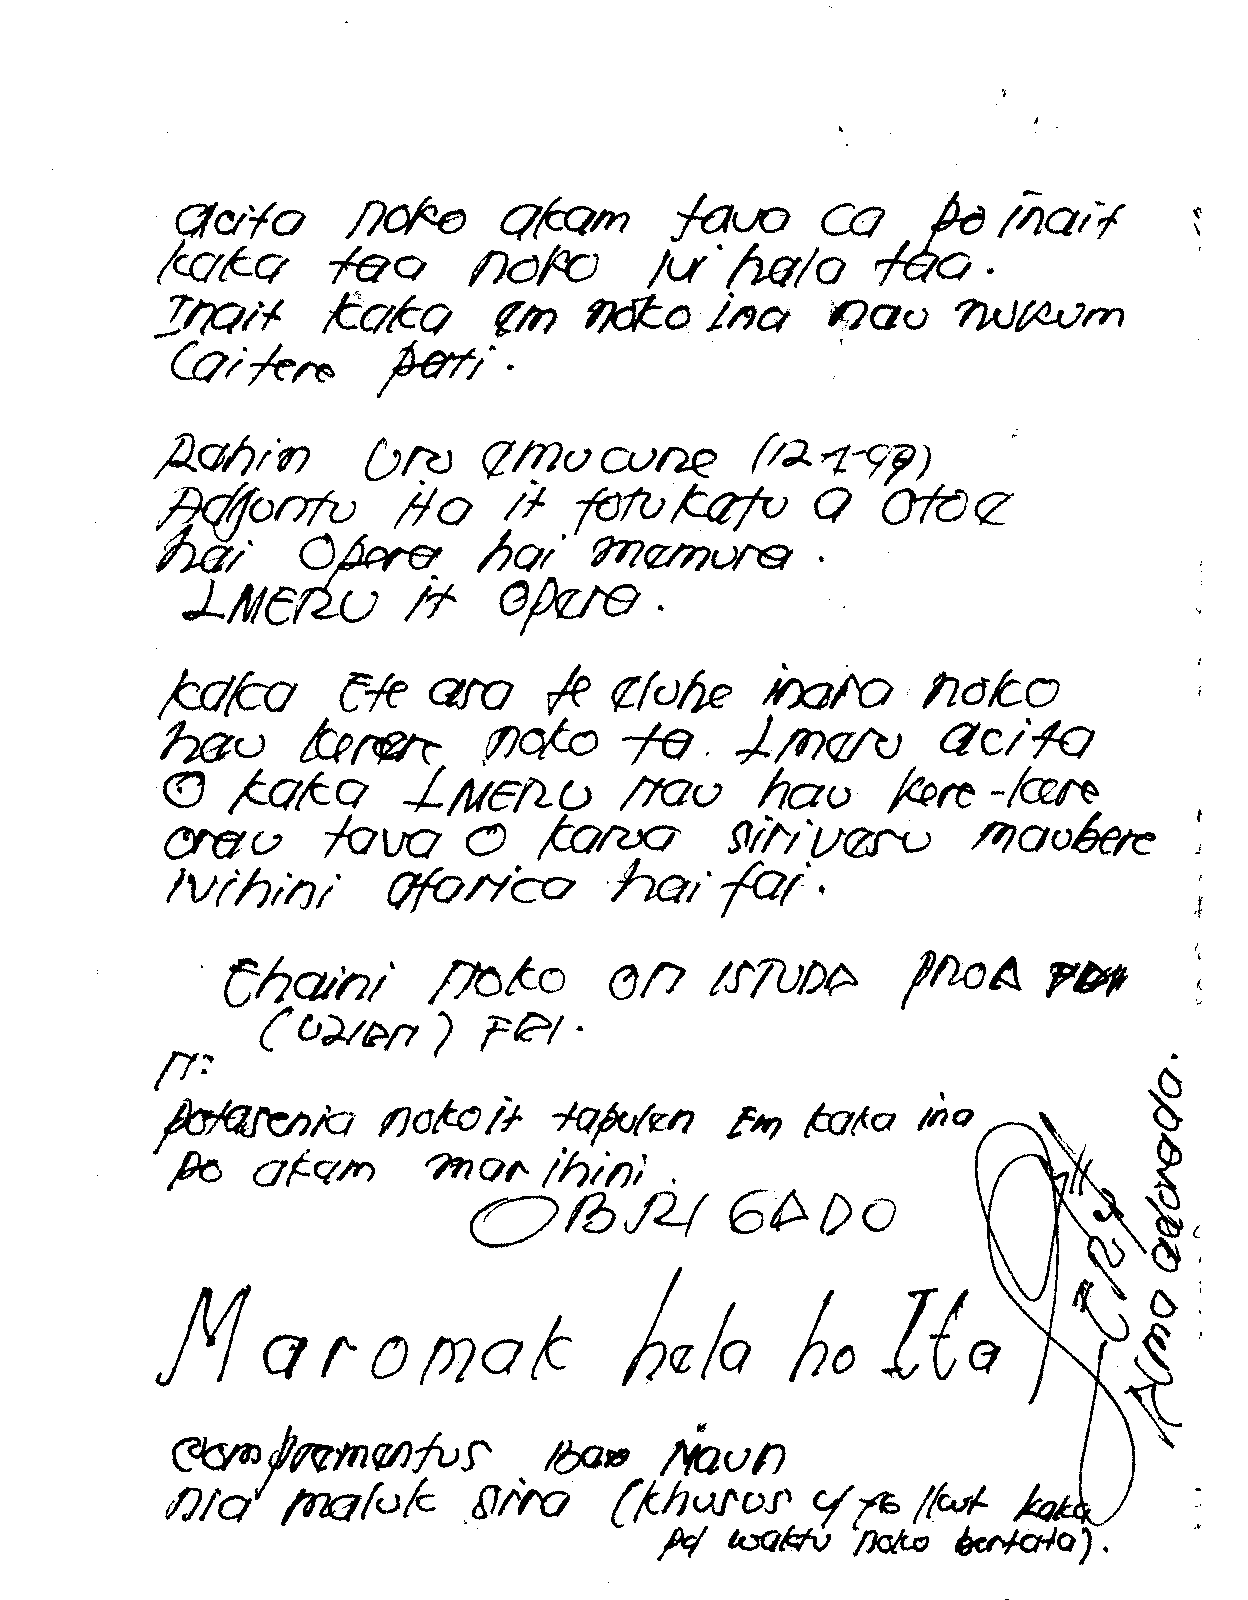 acita noko akam tavo ca po inait
kaka taa noko lui hala taa.
Inait kaka em noko ina nau nukum
Caitere pati.
Rahin Uru emucune (12-1-99)
Adjuntu ita it fotukatu a otoe
hai Opera hai mamura.
IMERU it opera.
kaka Ete asa te eluhe inara noko
hau kerere noko ta. Imaru acita
O kaka IMERU nau hau kere-kere
orau tava O karua sirivasu maubere
ivihini afarica hai fai.
Ehaini noko on ISTUDA PROA
(UZIEN) FEI.
N:
potasenia noko it tapulen Em kaka ina
po akam mar ihini.
OBRIGADO
Maromak hela ho Ita
comprementus Bao Maun
nia maluk sira (khusus yg ikut kaka
pd waktu noko bertata).
Alma adorada.